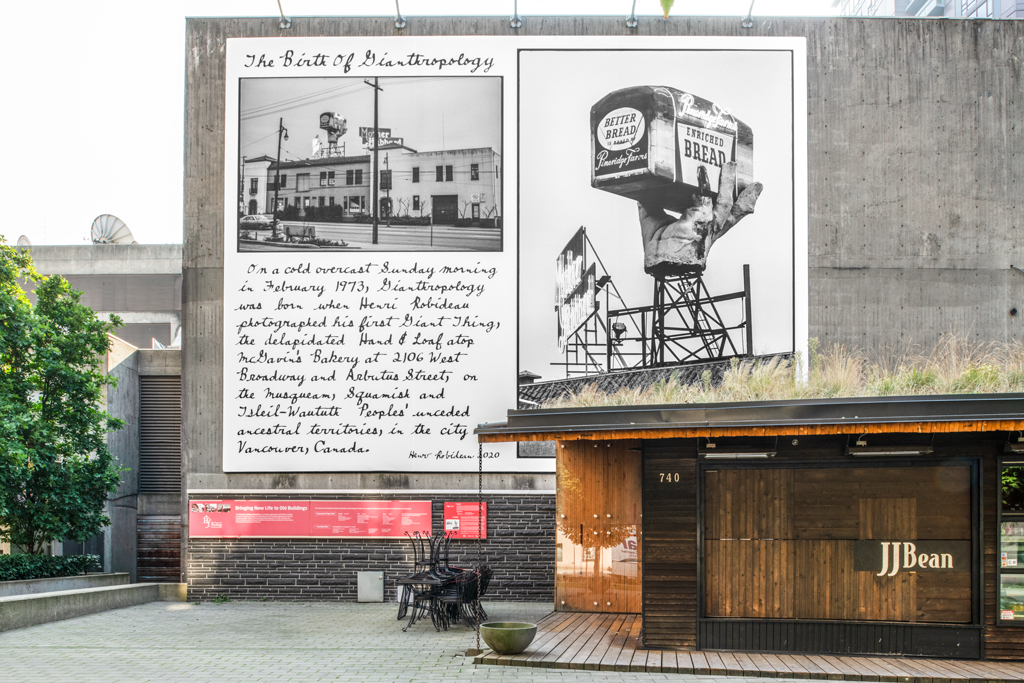 The Birth Of Gianthropology
On a cold overcast Sunday morning
in February 1973, Gianthropology
was born when Henri Robideau
photographed his first Giant Thing,
the delapidated Hand & Loaf atop
McGavin's Bakery at 2106 West
Broadway and Arbutus Street, on
the Musqueam, Squamish and
Tsleil-Waututh Peoples' unceded
ancestral territories, in the city
Vancouver, Canada.
Henri Robideau 2020
BETTER
BREAD
Pineridge Farms
Pineridge Farms
ENRICHED
BREAD
Bringing New Life to Old Buildings
740
JJBean